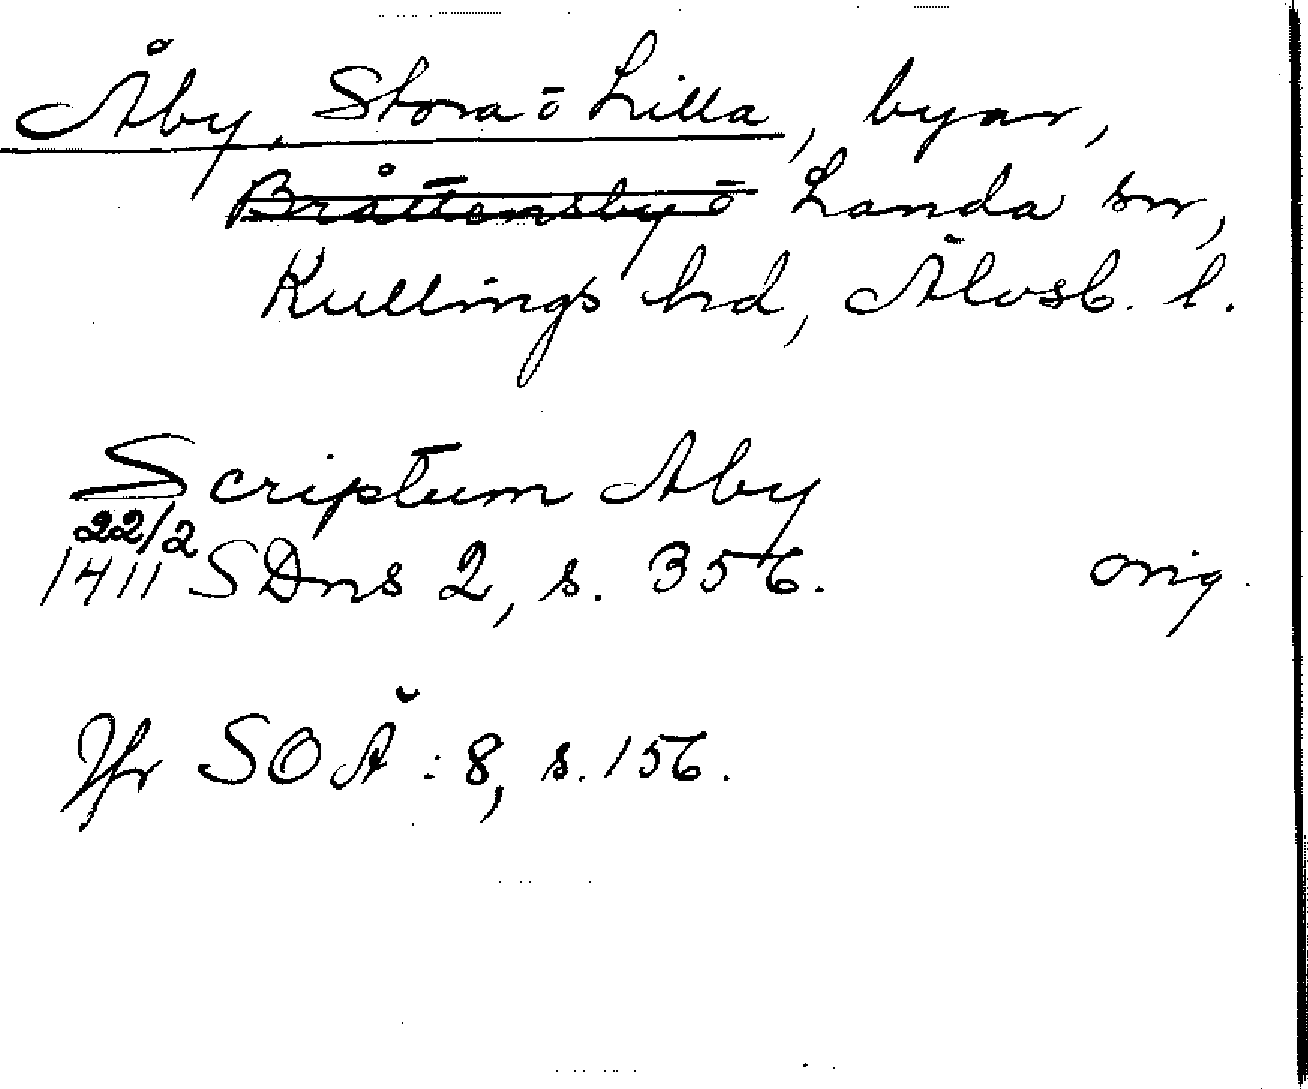 Åby, Stora o Lilla, byar,
Bråttensby o Landa snr,
Kullings hd, Älvsb. l.
Scriptum Aby
22/2
1411 SDns 2, s. 356. orig.
Jfr SOÄ: 8, s. 156.